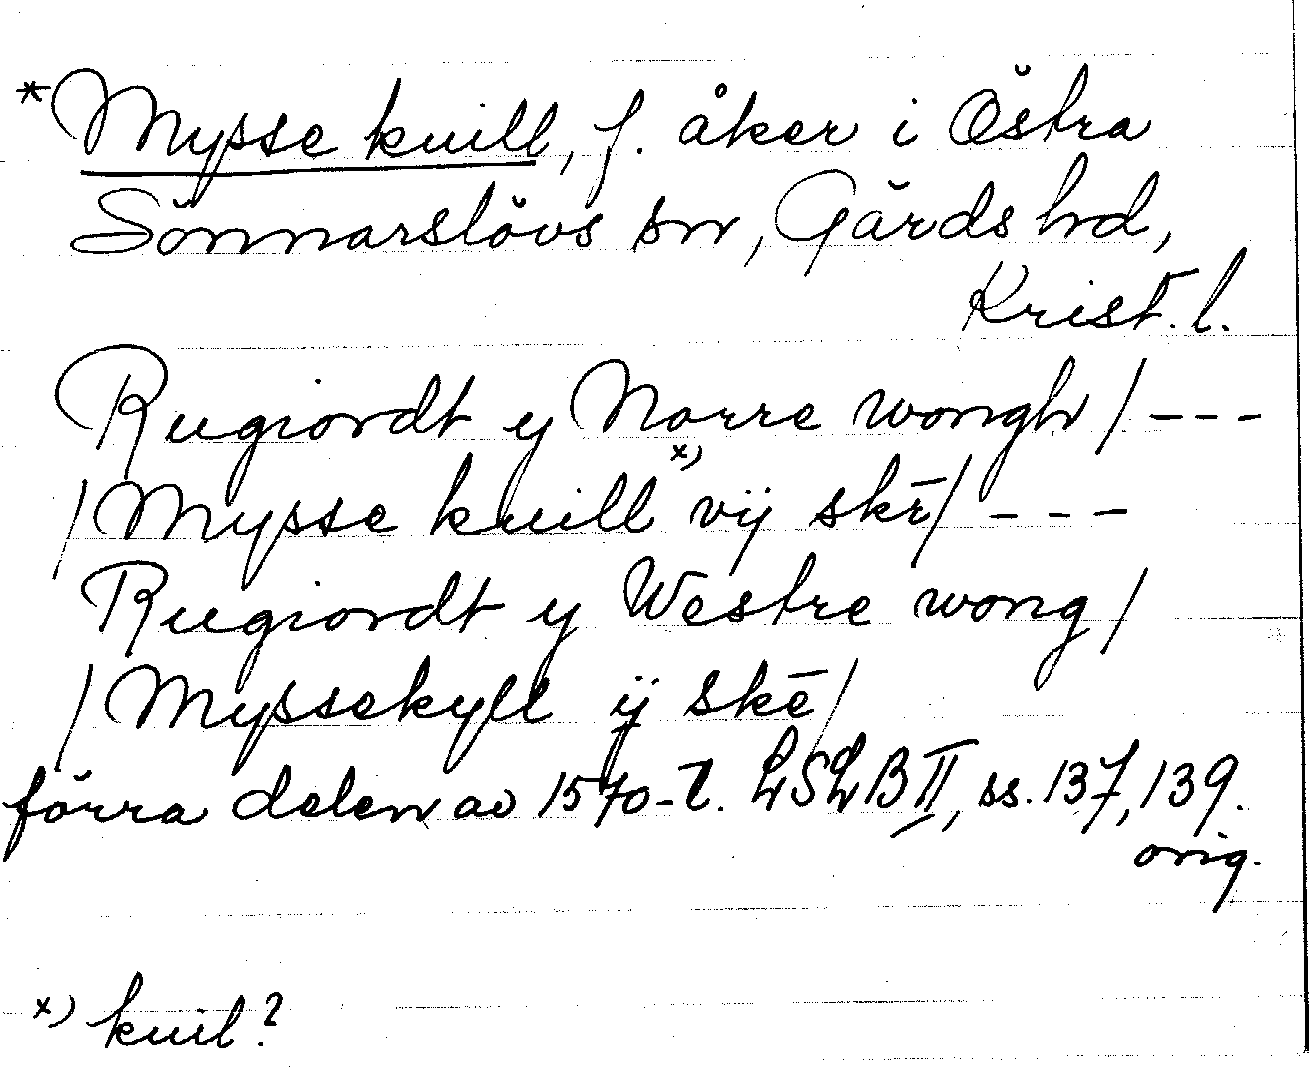 *Mysse kuill, f. åker i Östra
Sönnarslövs sn, Gärds hd,
Krist. l.
Rugiordt y Norre wongh / ---
/ Mysse kuill x) vij skē / ---
Rugiordt y Westre wong /
/ Myssekyll ij skē /
förra delen av 1570-t. LSLB II, ss. 137, 139.
orig.
x) kuil?